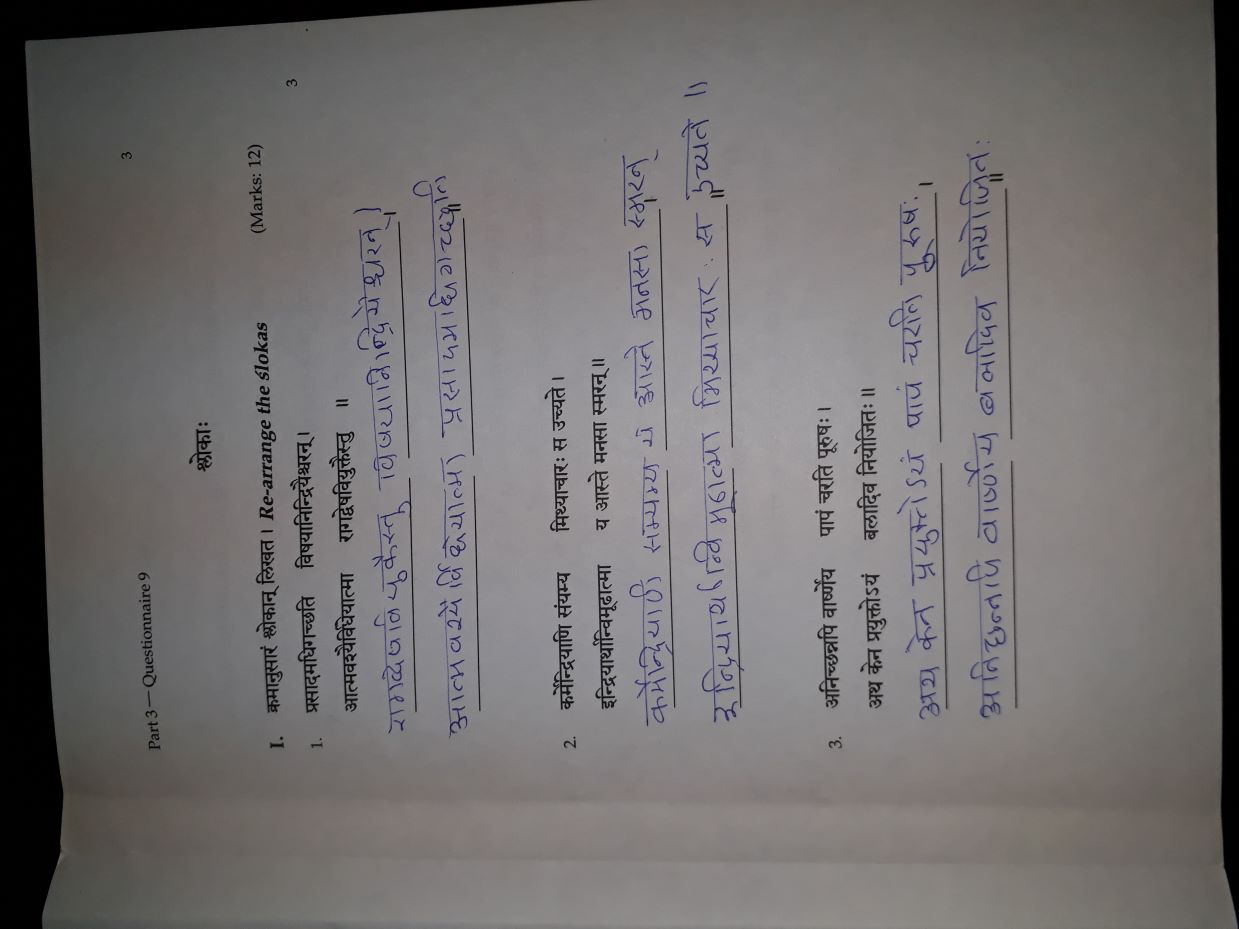 3
Part 3 — Questionnaire 9
श्लोकाः
I. क्रमानुसारं श्लोकान् लिखत। Re-arrange the ślokas (Marks: 12)
3
1. प्रसादमधिगच्छति विषयानिन्द्रियैश्चरन्।
आत्मवश्यैर्विधेयात्मा रागद्वेषवियुक्तैस्तु ॥
रागद्वेषवियुकैस्तु विषयानिन्द्रियैश्चरन् ।
आत्मवश्यैर्विधेयात्मा प्रसादमधिगच्छति ॥
2. कर्मेन्द्रियाणि संयम्य मिथ्याचारः स उच्यते।
इन्द्रियार्थान्विमूढात्मा य आस्ते मनसा स्मरन्॥
कर्मेन्द्रियाणि सम्यम्य य आस्ते मनसा स्मरन् ।
इन्द्रियार्थान्विमूढात्मा मिथ्याचारः स उच्यते ॥
3. अनिच्छन्नपि वार्ष्णेय पापं चरति पूरुषः।
अथ केन प्रयुक्तोऽयं बलादिव नियोजितः॥
अथ केन प्रयुक्तोऽयं पापं चरति पूरुषः ।
अनिछन्नपि वार्ष्णेय बलादिव नियोजितः ॥